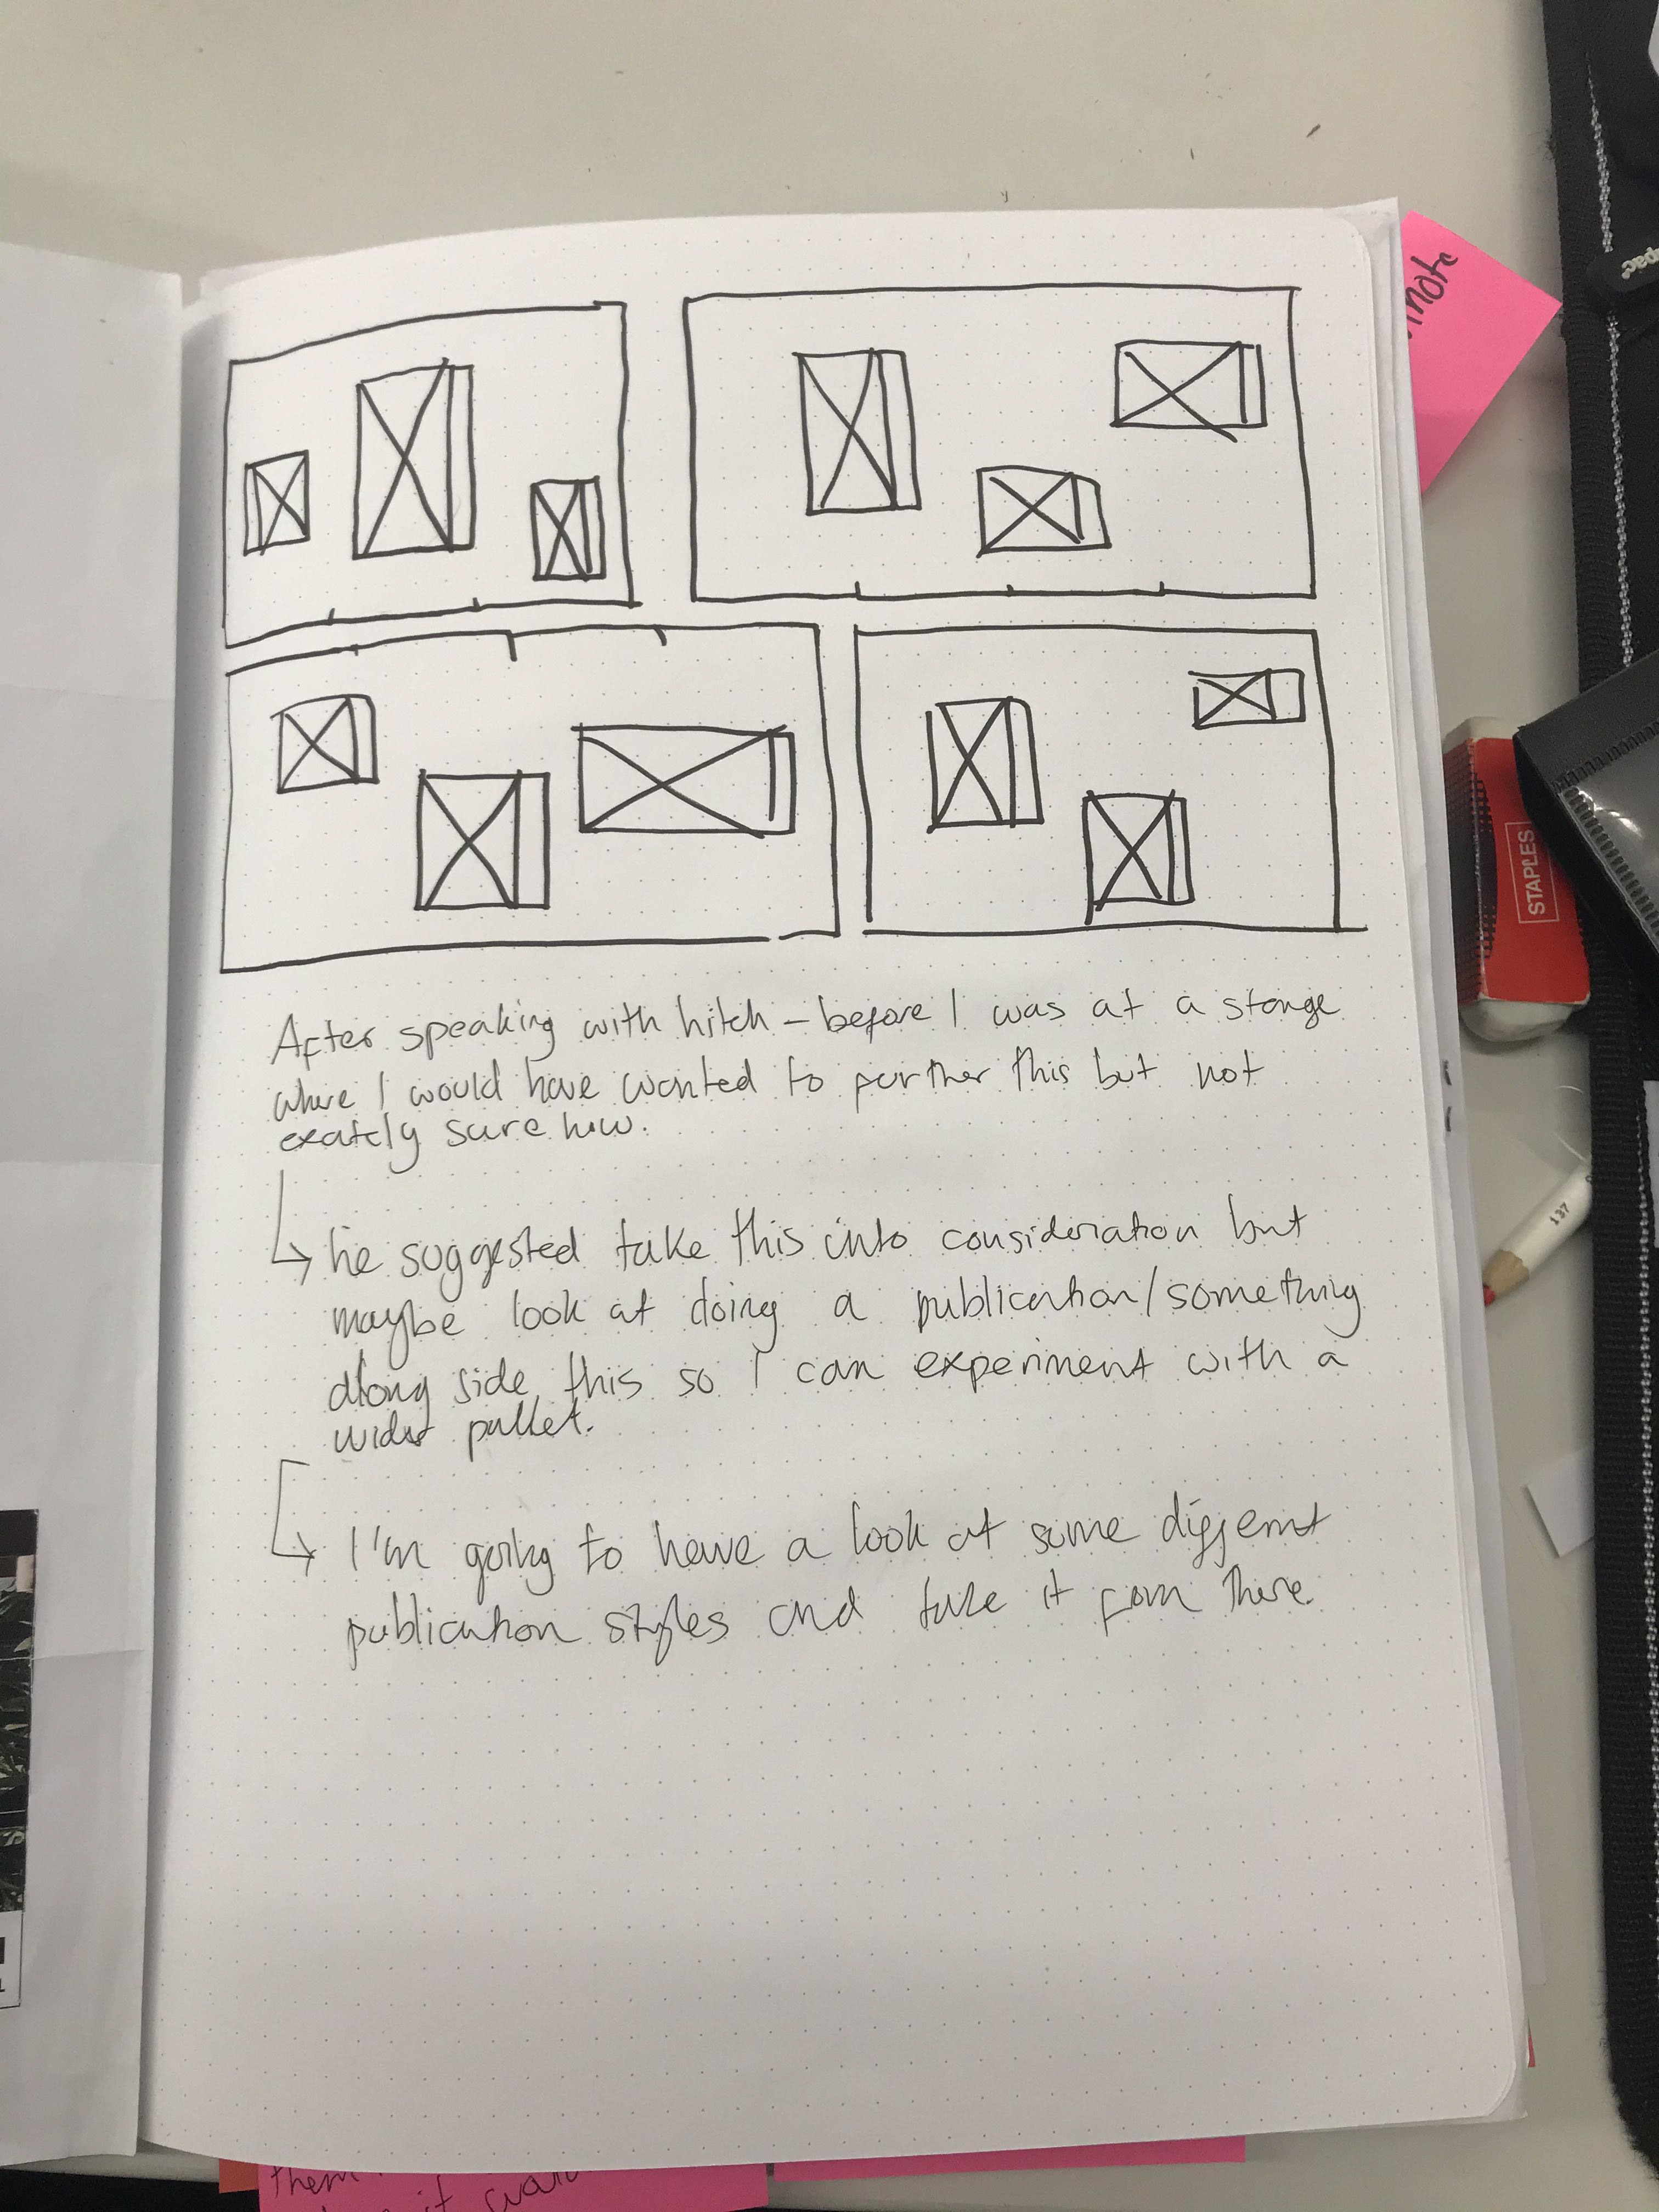 note
pac
STAPLES
137
After speaking with hitch – before I was at a stange
where I would have wanted to further this but not
exatcly sure how.
he suggested take this into consideration but
maybe look at doing a publication/something
along side this so I can experiment with a
wider pallet.
I'm going to have a look at some different
publication styles and take it from there.
them
it